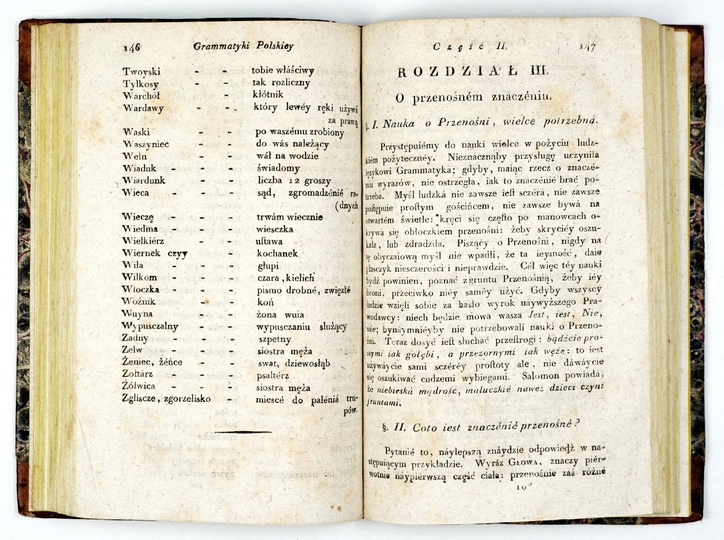 146 Grammatyki Polskiéy
Twoyski - - tobie właściwy
Tylkosy - - tak rozliczny
Warchół - - kłótnik
Wardawy - - który lewéy ręki używa
za prawą
Waski - - po waszému zrobiony
Waszyniec - - do wás należący
Weln - - wáł na wodzie
Wiaduk - - - świadomy
Wiardunk - - liczba 12 groszy
Wieca - - - sąd, zgromadzénié ra-
(dnych
Wieczę - - - trwám wiecznie
Wiedma - - - wiesczka
Wielkiérz - - ustawa
Wiernek czyy - - kochanek
Wiła - - - głupi
Wilkom - - - czara, kielich
Włoczka - - - pismo drobné, zwięzłé
Woźnik - - koń
Wuyna - - - żona wuia
Wypusczalny - - wypusczaniu służący
Zadny - - - szpetny
Zełw - - - siostra męża
Żeniec, żéńce - - swat, dziewosłąb
Żołtarz - - - psałtérz
Żółwica - - - siostra męża
Zgliscze, zgorzelisko - miescé do palénia tru-
pów.
Część II. 147
ROZDZIAŁ III.
O przenośném znaczéniu.
§. I. Nauka o Przenośni, wielce potrzebna.
Przystępuiémy do nauki wielce w pożyciu ludz-
kiém pożyteczney. Nieznacznąby przysługę uczyniła
ięzykowi Grammatyka; gdyby, maiąc rzecz o znaczé-
niu wyrazów, nie ostrzegła, iak to znaczénié brać po-
trzeba. Myśl ludzká nie zawsze iest sczérá, nie zawsze
postępuie prostym gościńcem, nie zawsze bywá na
otwartém świetle: kręci się często po manowcach o-
krywá się obłoczkiem przenośni: żeby skryciéy oszu-
kała, lub zdradziła. Pisząćy o Przenośni, nigdy na
tę obyczaiową myśl nie wpadli, że ta ieymość, daie
płasczyk niesczerości i nieprawdzie. Cél więc téy nauki
bydź powinien, poznać z gruntu Przenośnią, żeby iéy
broni, przeciwko niéy saméy użyć. Gdyby wszyscy
ludzie wzięli sobie za hasło wyrok naywyższego Pra-
wodawcy: niech będzie mowa wasza Jest, iest, Nie,
nie; bynáymniéyby nie potrzebowali nauki o Przeno-
śni. Teraz dosyć iest słuchać przestrogi: bądźcie pro-
stymi iak gołębi, a przezornymi iak węże: to iest
używáycie sami sczéréy prostoty ale, nie dáwáycie
się oszukiwać cudzemi wybiegami. Salomon powiada,
że niebieská mądrość, maluczkié nawet dzieci czyni
frantami.
§. II. Coto iest znaczénié przenośné?
Pytanié to, náylepszą znáydzie odpowiedź w na-
stępuiącym przykładzie. Wyráz Głowa, znaczy piér-
wotnie naypiérwszą część ciała: przenośnie zaś różné
10*